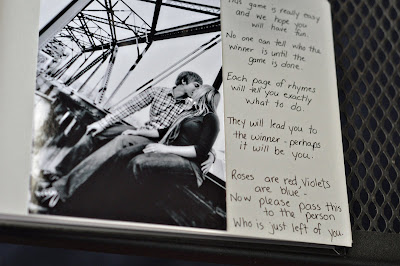 This game is really easy
and we hope you
will have fun.
No one can tell who the
winner is until the
game is done.
Each page of rhymes
will tell you exactly
what to do.
They will lead you to
the winner - perhaps
it will be you.
Roses are red, Violets
are blue -
Now please pass this
to the person
Who is just left of you.